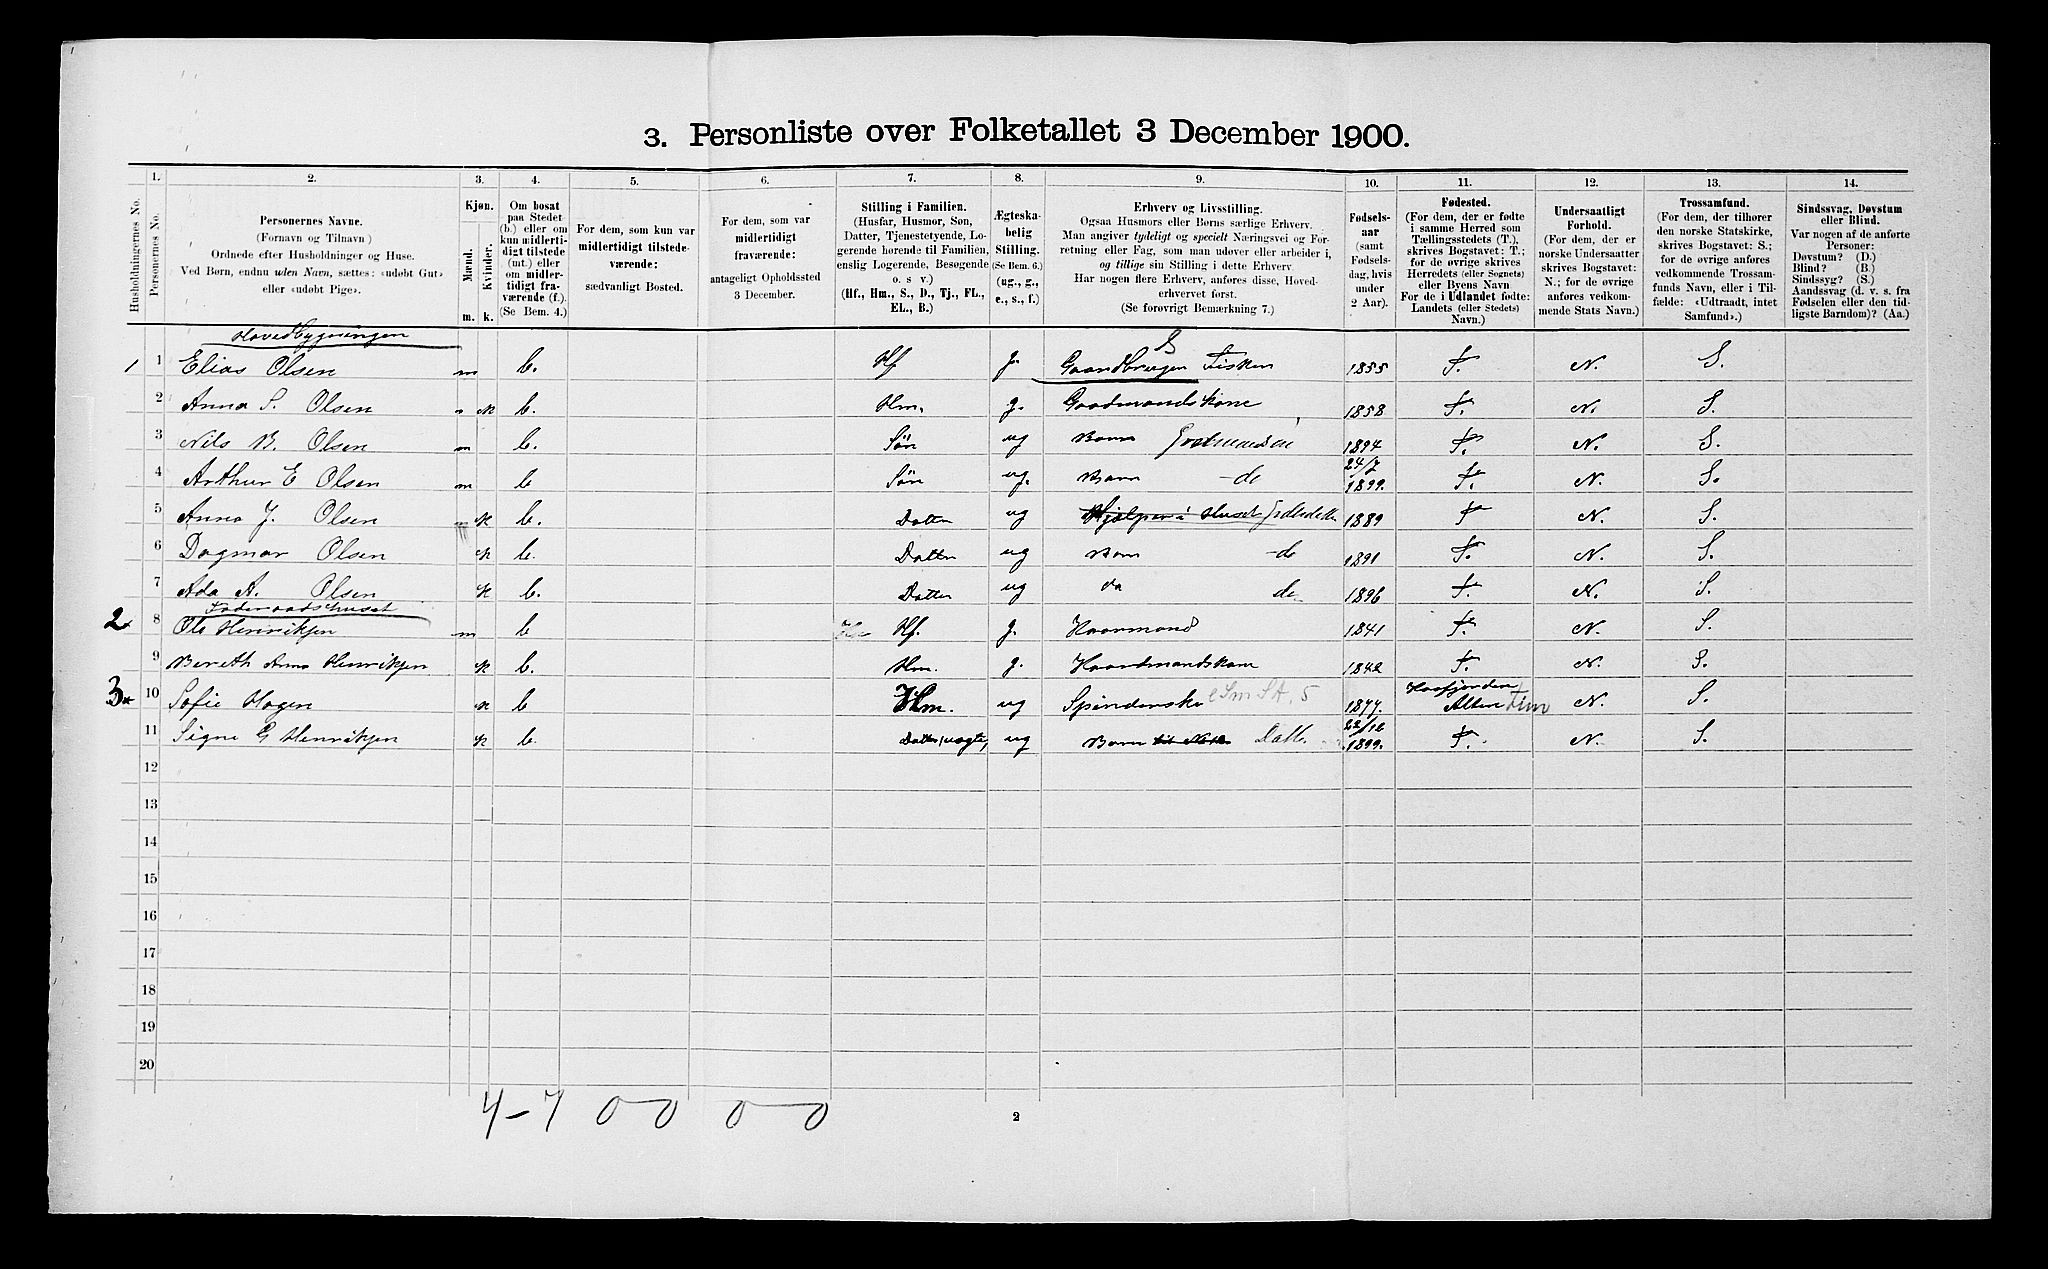 3. Personliste over Folketallet 3 December 1900.
Husholdningernes No.
1. Personernes No.
2. Personernes Navne. (Fornavn og Tilnavn) Ordnede efter Husholdninger og Huse. Ved Børn, endnu uden Navn, sættes: «udøbt Gut» eller «udøbt Pige».
3. Kjøn. Mænd. Kvinder. m. k.
4. Om bosat paa Stedet (b.) eller om kun midlertidigt tilstede (mt.) eller om midlertidigt fraværende (f.). (Se Bem. 4.)
5. For dem, som kun var midlertidigt tilstedeværende: sædvanligt Bosted.
6. For dem, som var midlertidigt fraværende: antageligt Opholdssted 3 December.
7. Stilling i Familien. (Husfar, Husmor, Søn, Datter, Tjenestetyende, Logerende hørende til Familien, enslig Logerende, Besøgende o. s v.) (Hf., Hm., S., D., Tj., FL., EL., B.)
8. Ægteskabelig Stilling. (Se Bem. 6.) (ug., g., e., s., f.)
9. Erhverv og Livsstilling. Ogsaa Husmors eller Børns særlige Erhverv. Man angiver tydeligt og specielt Næringsvei og Forretning eller Fag, som man udøver eller arbeider i, og tillige sin Stilling i dette Erhverv. Har nogen flere Erhverv, anføres disse, Hovederhvervet først. (Se forøvrigt Bemærkning 7.)
10. Fødselsaar (samt Fødselsdag, hvis under 2 Aar).
11. Fødested. (For dem, der er fødte i samme Herred som Tællingsstedets (T.), skrives Bogstavet: T.; for de øvrige skrives Herredets (eller Sognets) eller Byens Navn For de i Udlandet fødte: Landets (eller Stedets) Navn.)
12. Undersaatligt Forhold. (For dem, der er norske Undersaatter skrives Bogstavet: N.; for de øvrige anføres vedkommende Stats Navn.)
13. Trossamfund. (For dem, der tilhører den norske Statskirke, skrives Bogstavet: S.; for de øvrige anføres vedkommende Trossamfunds Navn, eller i Tilfælde: «Udtraadt, intet Samfund».)
14. Sindssvag, Døvstum eller Blind. Var nogen af de anførte Personer: Døvstum? (D.) Blind? (B.) Sindssyg? (S.) Aandssvag (d. v. s. fra Fødselen eller den tidligste Barndom)? (Aa.)
Hovedbygningen
1 1 Elias Olsen m b. Hf g. Gaardbruger Fisker S 1855 T. N. S.
2 Anna S. Olsen k b. Hm. g. Gaardmandskone 1858 T. N. S.
3 Nils B. Olsen m b. Søn ug Barn 1894 T. N. S.
4 Arthur E Olsen m b Søn ug. Barn -de 24/7 1899. T. N. S.
5 Anna J. Olsen k b. Datter ug Hjælper i Huset 1889 T N. S.
6 Dagmar Olsen k b. Datter ug Barn -de 1891 T. N. S.
7 Ada A. Olsen k b. Datter ug da de 1896 T. N. S.
Føderaadshuset
2 8 Ole Henriksen m b Hf. g. Kaarmand 1841 T. N. S.
9 Bereth Anna Henriksen k b. Hm. g. Kaarmandskone 1842 T. N. S.
3 10 Sofie Hagen k b Hm. ug Spinderske 1877. Kaafjorden Alten N. S.
11 Signe G Henriksen k b. Datter, ug Barn Datt. 22/12 1899. T. N. S.
12
13
14
15
16
17
18
19
20
4-7 0 0 0-0
2